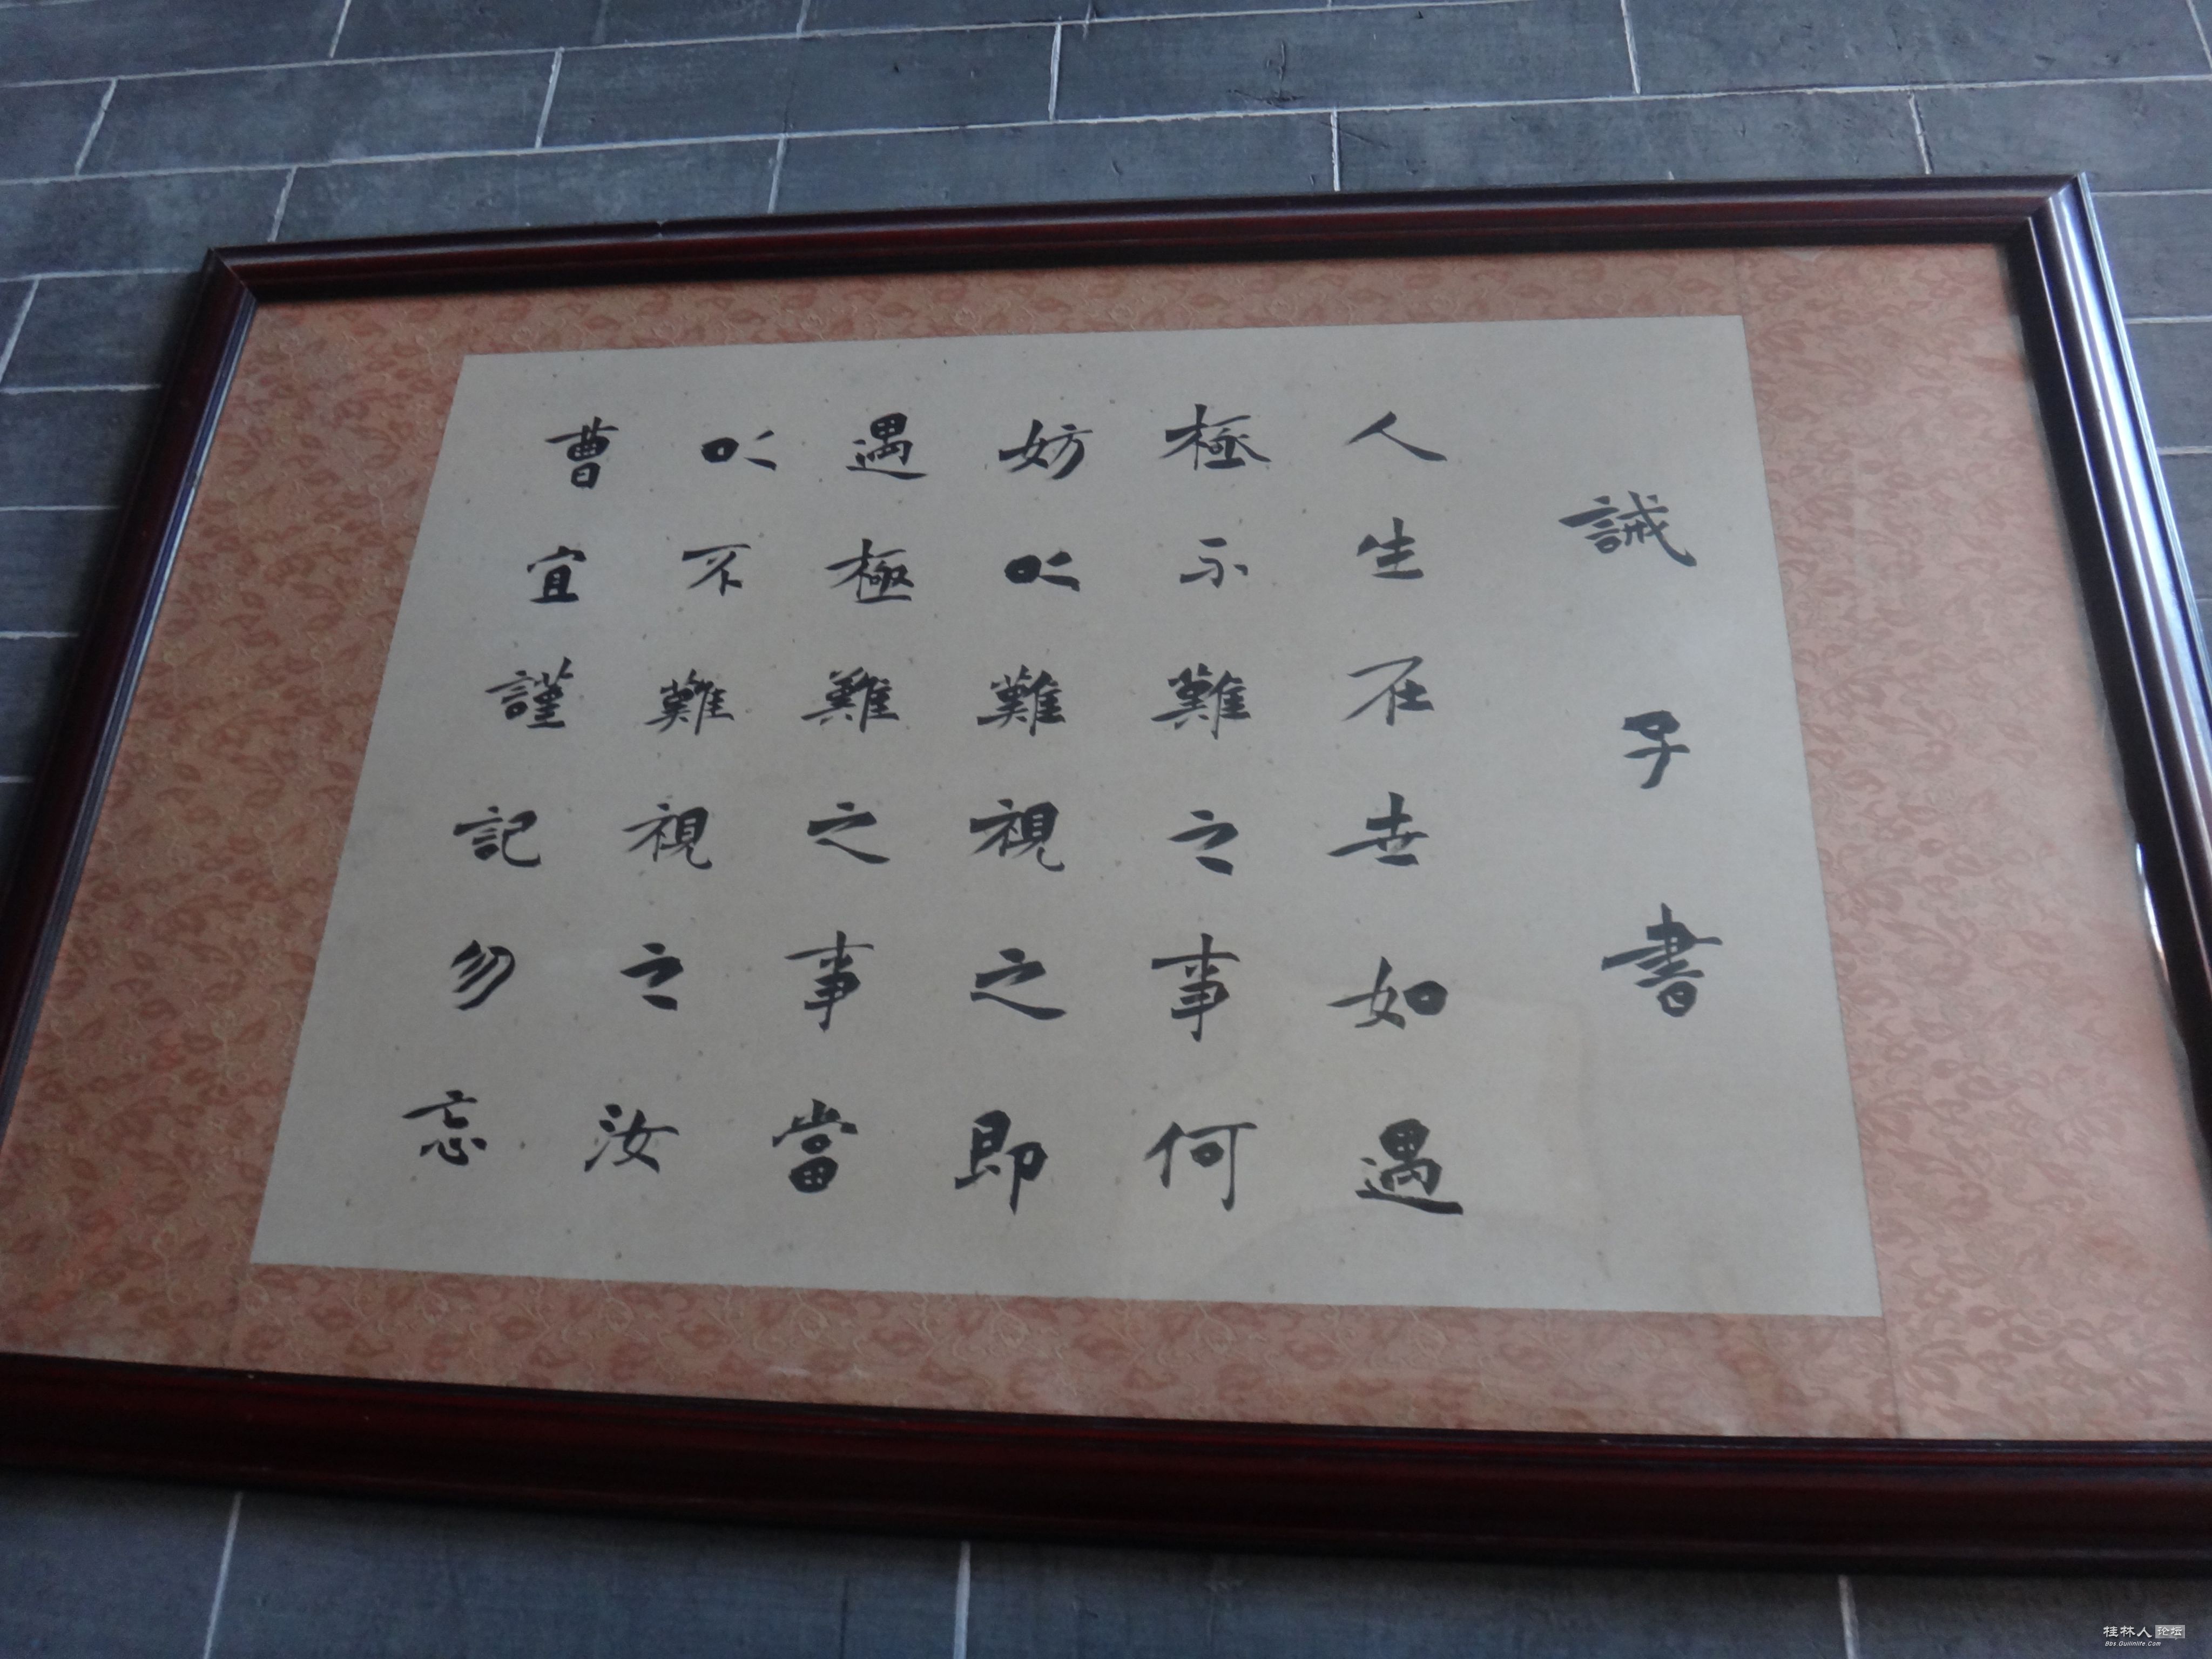 誡子書
人生在世如遇
極不難之事何
妨以難視之即
遇極難之事當
以不難視之汝
曹宜謹記勿忘
桂林人论坛
Bbs.Guilinlife.Com